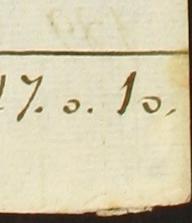 17. 0. 10.